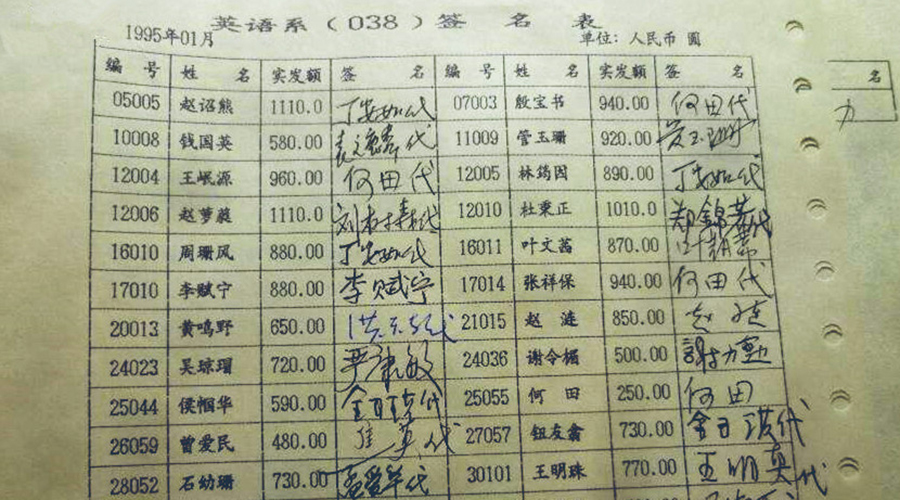 英语系（038）签 名 表
1995年01月 单位：人民币 圆
编 号 姓 名 实发额 签 名 编 号 姓 名 实发额 签 名 名
05005 赵诏熊 1110.0 丁安如代 07003 殷宝书 940.00 何田代 力
10008 钱国英 580.00 代 11009 管玉珊 920.00 管玉珊
12004 王岷源 960.00 何田代 12005 林筠因 890.00 丁安如代
12006 赵萝蕤 1110.0 刘树森代 12010 杜秉正 1010.0 郑锦芳代
16010 周珊凤 880.00 丁安如代 16011 叶文茜 870.00
17010 李赋宁 880.00 李赋宁 17014 张祥保 940.00 何田代
20013 黄鸣野 650.00 代 21015 赵 涟 850.00 赵涟
24023 吴琼瑁 720.00 24036 谢令楣 500.00
25044 侯帼华 590.00 代 25055 何 田 250.00 何田
26059 曾爱民 480.00 英代 27057 钮友翕 730.00 代
28052 石幼珊 730.00 代 30101 王明珠 770.00 王明 代